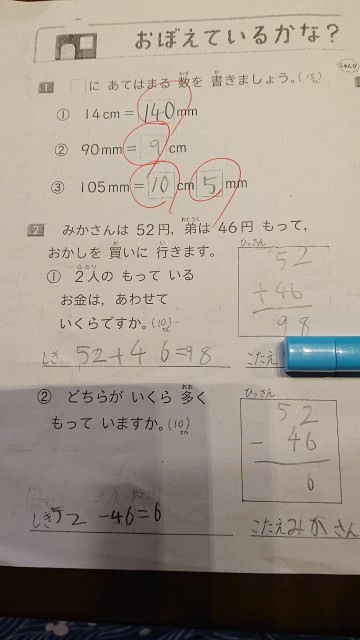 おぼえているかな?
じゅんび
1 □に あてはまる 数を 書きましょう。(15てん)
① 14cm=140mm
② 90mm=9cm
③ 105mm=10cm5mm
2 みかさんは 52円, 弟は 46円 もって,
おかしを 買いに 行きます。
① 2人の もって いる
お金は, あわせて
いくらですか。(10てん)
ひっさん
52
+46
98
しき 52+46=98
こたえ
② どちらが いくら 多く
もって いますか。(10てん)
ひっさん
52
-46
6
しき52-46=6
こたえみかさん